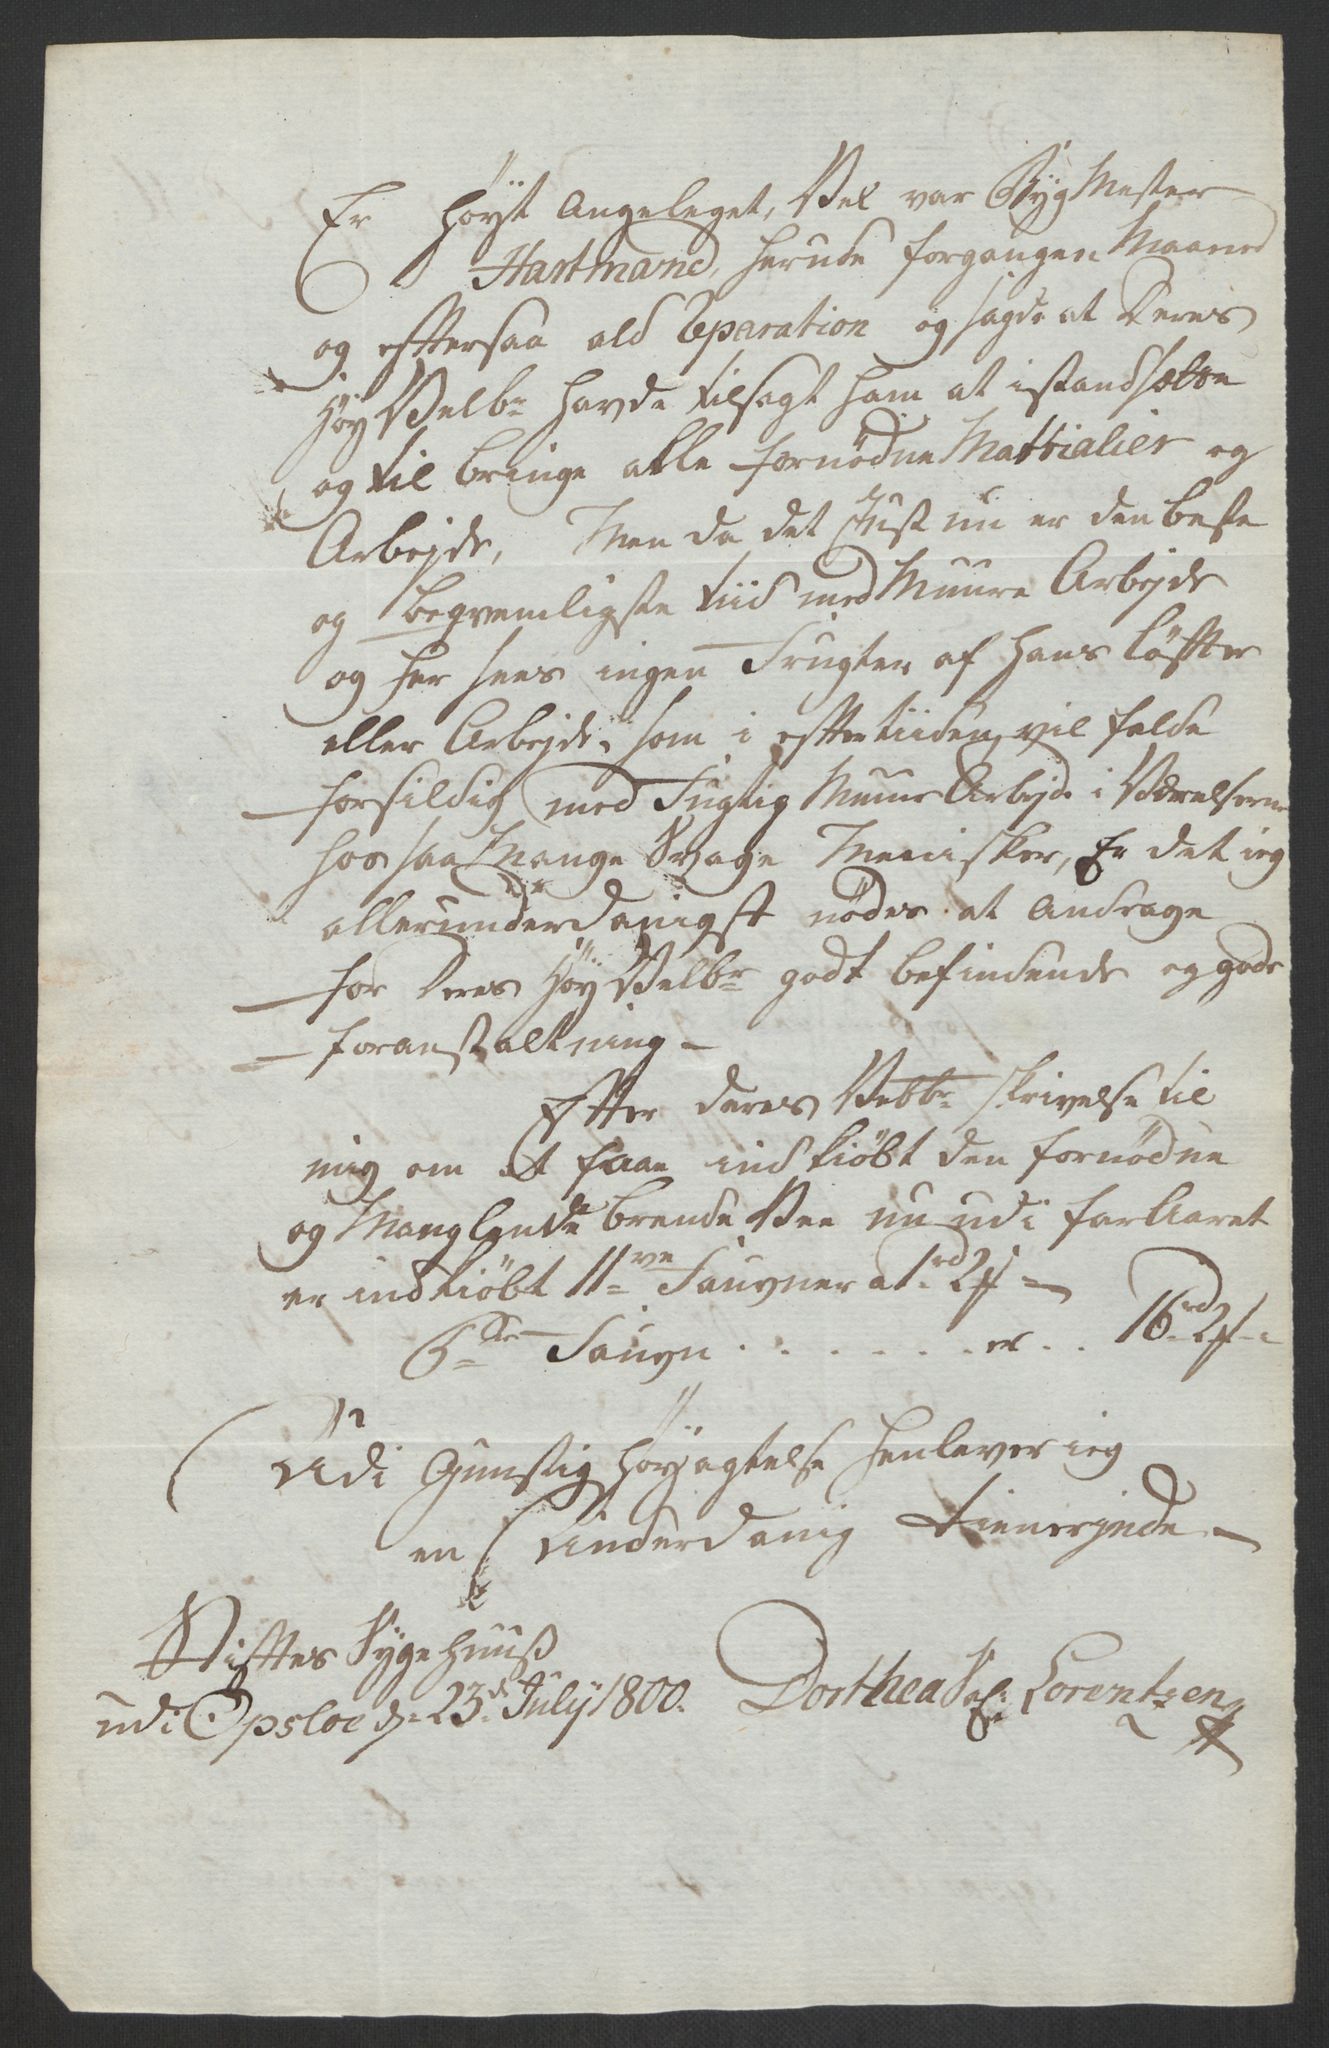 Er høyt Angeleget, Vel var Byg Mester
Hartmand, herude forgangen Maaned
og efftersaa ald Reparation og sagde at Deres
Høy Velb: havde tilsagt ham at istandsætte
og til bringe alle fornødne Mattrialier og
Arbejde, Men da det Just nu er den beste
og beqvemligste tiid med Muure Arbejde
og her sees ingen Frugter af hans Løffter
eller Arbejde, som i efftertiiden vil falde
forsildig med Fugtig Muure Arbejde i Værelserne
hos saa Mange Svage Mennisker, Er det ieg
allerunderdanigst nødes at Andrage
for Deres Høy Velb:r godt befindende og gode
foranstaltning -
Effter deres Velb:r skrivelse til
mig om at faae ind kiøbt den fornødne
og Manglende brende Vee nu udi for Aaret
er indkiøbt 11ve Fauyner a 1rd 2 ß -
Fauyn . . . . . . . er . . 16rd 2 ß -
Udi Gunstig Høyagtelse henlever ieg
en Underdanig tienerjnde -
Stifftes Sygehuuß
udi Opsloe d: 23de July 1800. Dorthea Sal: Lorentzen